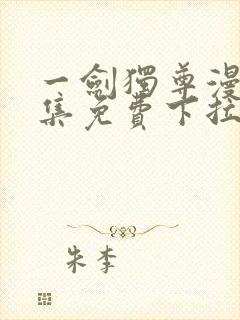 一劍獨尊漫
集免費下拉
朱李